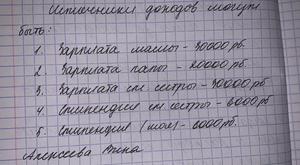 Источники доходов могут
быть:
1. Зарплата мамы - 30000 рб.
2. Зарплата папы - 20000 рб.
3. Зарплата ст. сестры - 30000 рб
4. Стипендия ст. сестры - 6000 рб
5. Стипендия (моя) - 6000 рб.
Алексеева